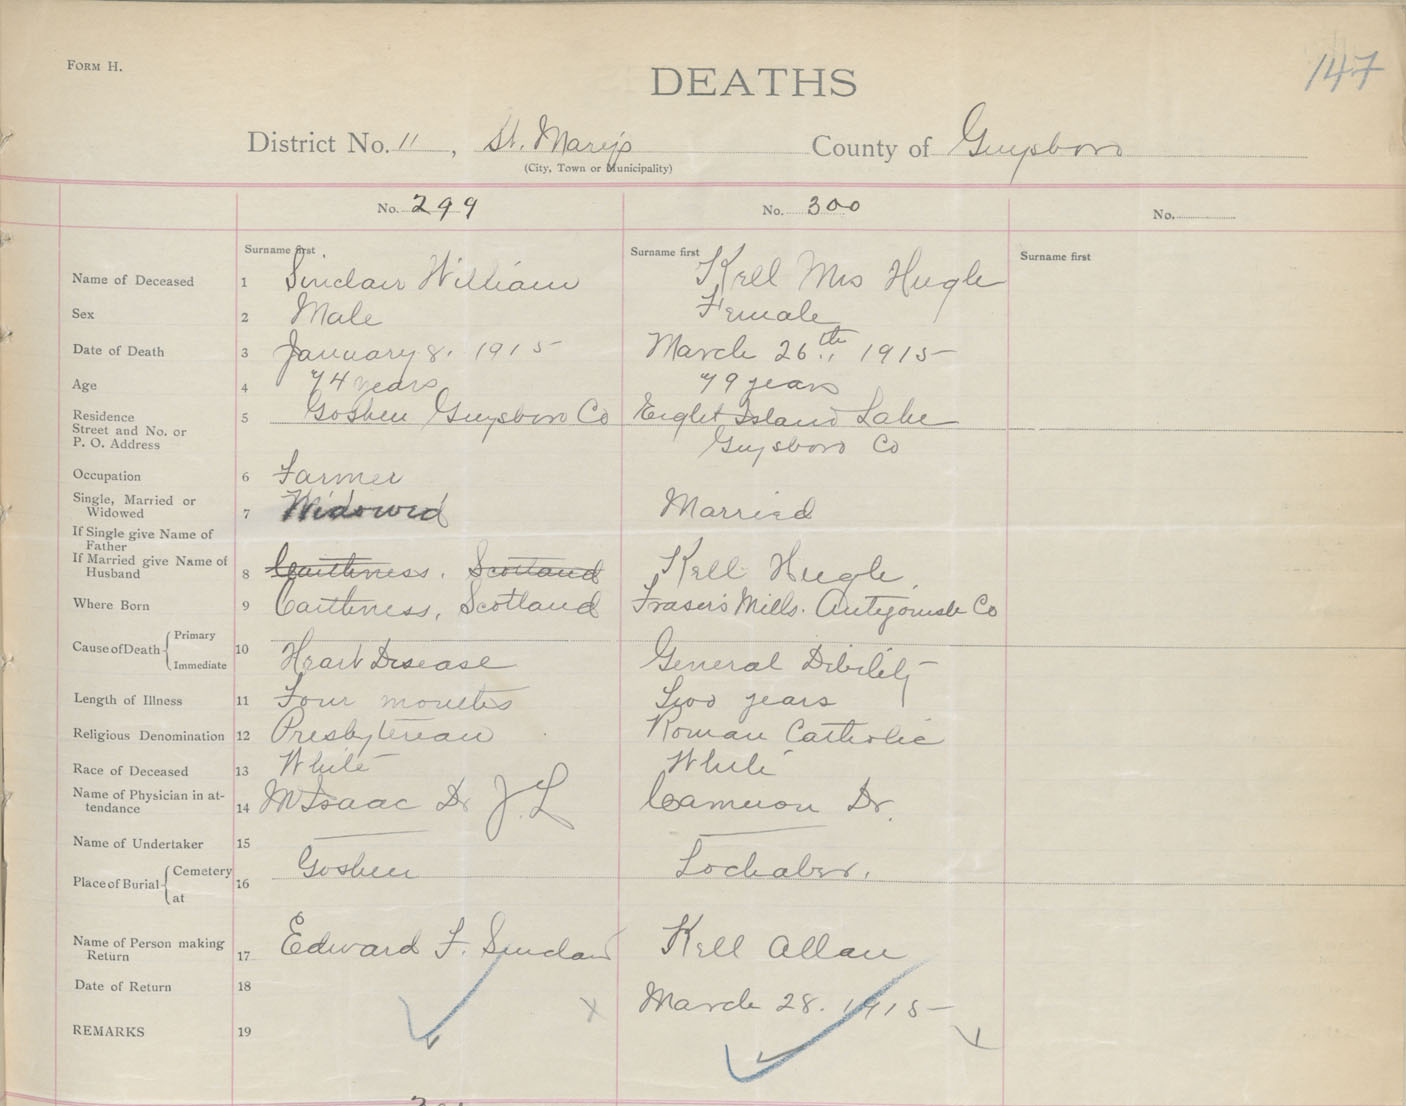 FORM H.
147
DEATHS
District No. 11, St. Mary's County of Guysboro
(City, Town or Municipality)
No. 299 No. 300 No.
Surname first Surname first Surname first
Name of Deceased 1 Sinclair William Kell Mrs Hugh
Sex 2 Male Female
Date of Death 3 January 8. 1915 March 26th, 1915
Age 4 74 years 79 years
Residence
Street and No. or
P. O. Address 5 Goshen Guysboro Co Eight Island Lake
Guysboro Co
Occupation 6 Farmer
Single, Married or
Widowed 7 Widowed Married
If Single give Name of
Father
If Married give Name of
Husband 8 Caithness, Scotland Kell Hugh
Where Born 9 Caithness, Scotland Fraser's Mills. Antigonish Co
Cause of Death Primary
Immediate 10 Heart Disease General Dibility
Length of Illness 11 Four months Two years
Religious Denomination 12 Presbyterian Roman Catholic
Race of Deceased 13 White White
Name of Physician in at-
tendance 14 McIsaac Dr J. L Cameron Dr.
Name of Undertaker 15
Place of Burial Cemetery
at 16 Goshen Lochaber.
Name of Person making
Return 17 Edward F. Sinclair Kell Allan
Date of Return 18 March 28. 1915
REMARKS 19